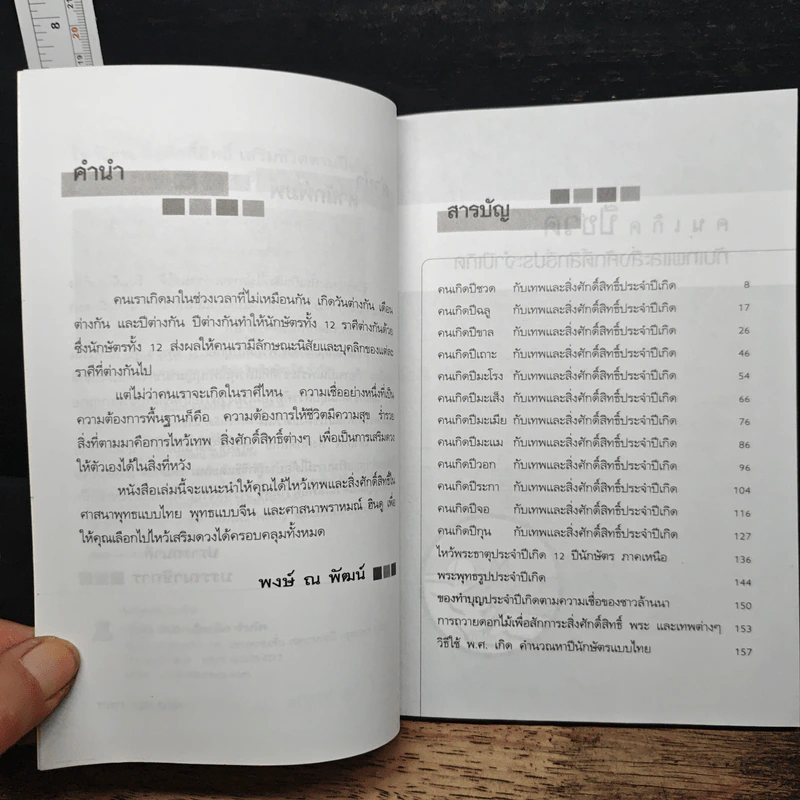 8
19
20
คำนำ
คนเราเกิดมาในช่วงเวลาที่ไม่เหมือนกัน เกิดวันต่างกัน เดือน
ต่างกัน และปีต่างกัน ปีต่างกันทำให้นักษัตรทั้ง 12 ราศีต่างกันด้วย
ซึ่งนักษัตรทั้ง 12 ส่งผลให้คนเรามีลักษณะนิสัยและบุคลิกของแต่ละ
ราศีที่ต่างกันไป
แต่ไม่ว่าคนเราจะเกิดในราศีไหน ความเชื่ออย่างหนึ่งที่เป็น
ความต้องการพื้นฐานก็คือ ความต้องการให้ชีวิตมีความสุข ร่ำรวย
สิ่งที่ตามมาคือการไหว้เทพ สิ่งศักดิ์สิทธิ์ต่างๆ เพื่อเป็นการเสริมดวง
ให้ตัวเองได้ในสิ่งที่หวัง
หนังสือเล่มนี้จะแนะนำให้คุณได้ไหว้เทพและสิ่งศักดิ์สิทธิ์ใน
ศาสนาพุทธแบบไทย พุทธแบบจีน และศาสนาพราหมณ์ ฮินดู เพื่อ
ให้คุณเลือกไปไหว้เสริมดวงได้ครอบคลุมทั้งหมด
พงษ์ ณ พัฒน์
สารบัญ
คนเกิดปีชวด กับเทพและสิ่งศักดิ์สิทธิ์ประจำปีเกิด 8
คนเกิดปีฉลู กับเทพและสิ่งศักดิ์สิทธิ์ประจำปีเกิด 17
คนเกิดปีขาล กับเทพและสิ่งศักดิ์สิทธิ์ประจำปีเกิด 26
คนเกิดปีเถาะ กับเทพและสิ่งศักดิ์สิทธิ์ประจำปีเกิด 46
คนเกิดปีมะโรง กับเทพและสิ่งศักดิ์สิทธิ์ประจำปีเกิด 54
คนเกิดปีมะเส็ง กับเทพและสิ่งศักดิ์สิทธิ์ประจำปีเกิด 66
คนเกิดปีมะเมีย กับเทพและสิ่งศักดิ์สิทธิ์ประจำปีเกิด 76
คนเกิดปีมะแม กับเทพและสิ่งศักดิ์สิทธิ์ประจำปีเกิด 86
คนเกิดปีวอก กับเทพและสิ่งศักดิ์สิทธิ์ประจำปีเกิด 96
คนเกิดปีระกา กับเทพและสิ่งศักดิ์สิทธิ์ประจำปีเกิด 104
คนเกิดปีจอ กับเทพและสิ่งศักดิ์สิทธิ์ประจำปีเกิด 116
คนเกิดปีกุน กับเทพและสิ่งศักดิ์สิทธิ์ประจำปีเกิด 127
ไหว้พระธาตุประจำปีเกิด 12 ปีนักษัตร ภาคเหนือ 136
พระพุทธรูปประจำปีเกิด 144
ของทำบุญประจำปีเกิดตามความเชื่อของชาวล้านนา 150
การถวายดอกไม้เพื่อสักการะสิ่งศักดิ์สิทธิ์ พระ และเทพต่างๆ 153
วิธีใช้ พ.ศ. เกิด คำนวณหาปีนักษัตรแบบไทย 157